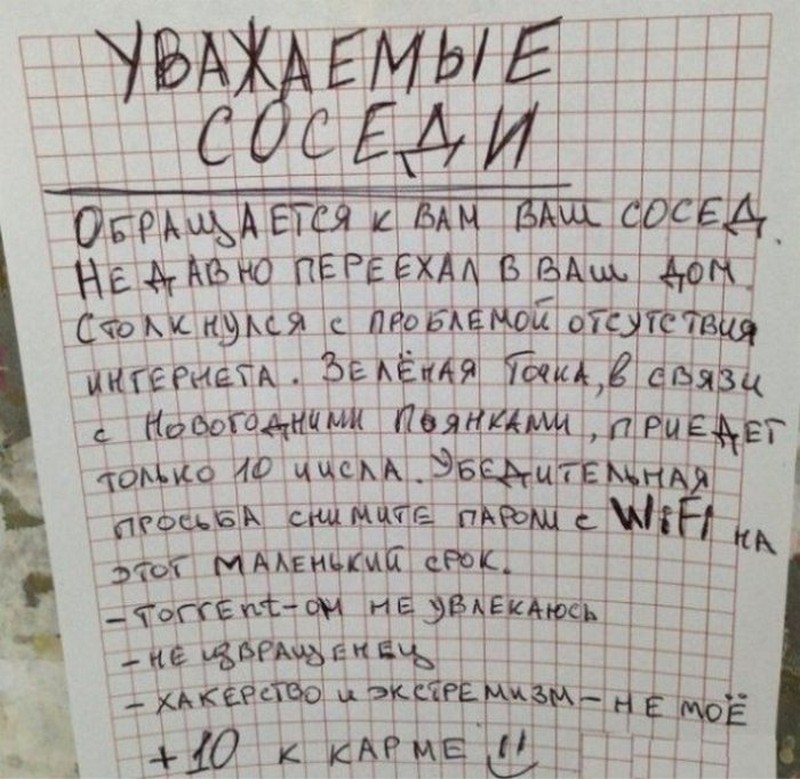 УВАЖАЕМЫЕ
СОСЕДИ
ОБРАЩАЕТСЯ К ВАМ ВАШ СОСЕД.
НЕДАВНО ПЕРЕЕХАЛ В ВАШ ДОМ.
СТОЛКНУЛСЯ С ПРОБЛЕМОЙ ОТСУТСТВИЯ
ИНТЕРНЕТА. ЗЕЛЁНАЯ ТОЧКА, В СВЯЗИ
С НОВОГОДНИМИ ПЬЯНКАМИ, ПРИЕДЕТ
ТОЛЬКО 10 ЧИСЛА. УБЕДИТЕЛЬНАЯ
ПРОСЬБА СНИМИТЕ ПАРОЛИ С WiFi НА
ЭТОТ МАЛЕНЬКИЙ СРОК.
- TorrEnt-ОМ НЕ УВЛЕКАЮСЬ
- НЕ ИЗВРАЩЕНЕЦ
- ХАКЕРСТВО И ЭКСТРЕМИЗМ - НЕ МОЁ
+10 К КАРМЕ